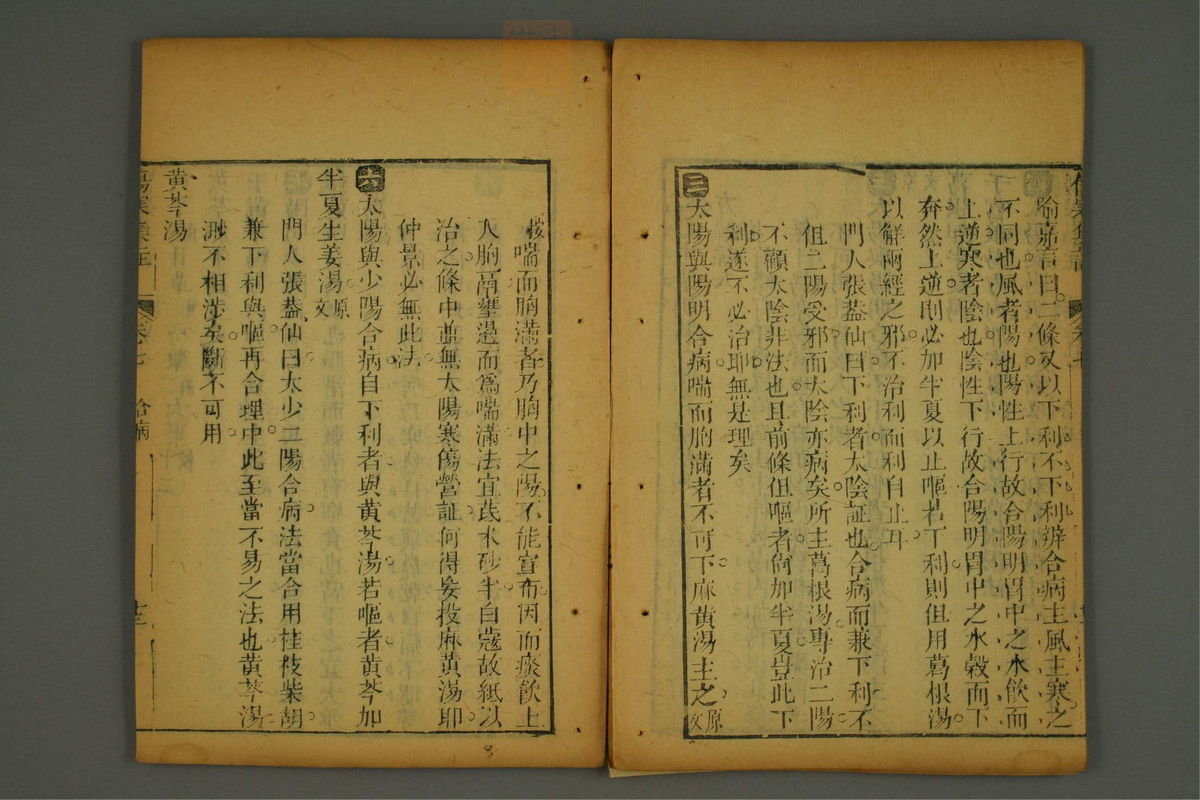 喻嘉言曰二條又以下利不下利辨合病主風主寒之
不同也風者陽也陽性上行故合陽明胃中之水飲而
上逆寒者陰也陰性下行故合陽明胃中之水穀而下
奔然上逆則必加半夏以止嘔若下利則但用葛根湯
以解兩經之邪不治利而利自止耳
門人張藎仙曰下利者太陰証也合病而兼下利不
但二陽受邪而太陰亦病矣所主葛根湯專治二陽
不顧太陰非法也且前條但嘔者尙加半夏豈此下
利遂不必治耶無是理矣
三太陽與陽明合病喘而胸滿者不可下麻黃湯主之原文
按喘而胸滿者乃胸中之陽不能宣布因而痰飲上
入胸膈壅遏而爲喘滿法宜茋术砂半白蔻故紙以
治之條中並無太陽寒傷營証何得妄投麻黃湯耶
仲景必無此法
六太陽與少陽合病自下利者與黃芩湯若嘔者黃芩加
半夏生姜湯原文
門人張藎仙曰太少二陽合病法當合用桂枝柴胡
兼下利與嘔再合理中此至當不易之法也黃芩湯
渺不相涉矣斷不可用
黃芩湯
傷寒集註 卷七 合病